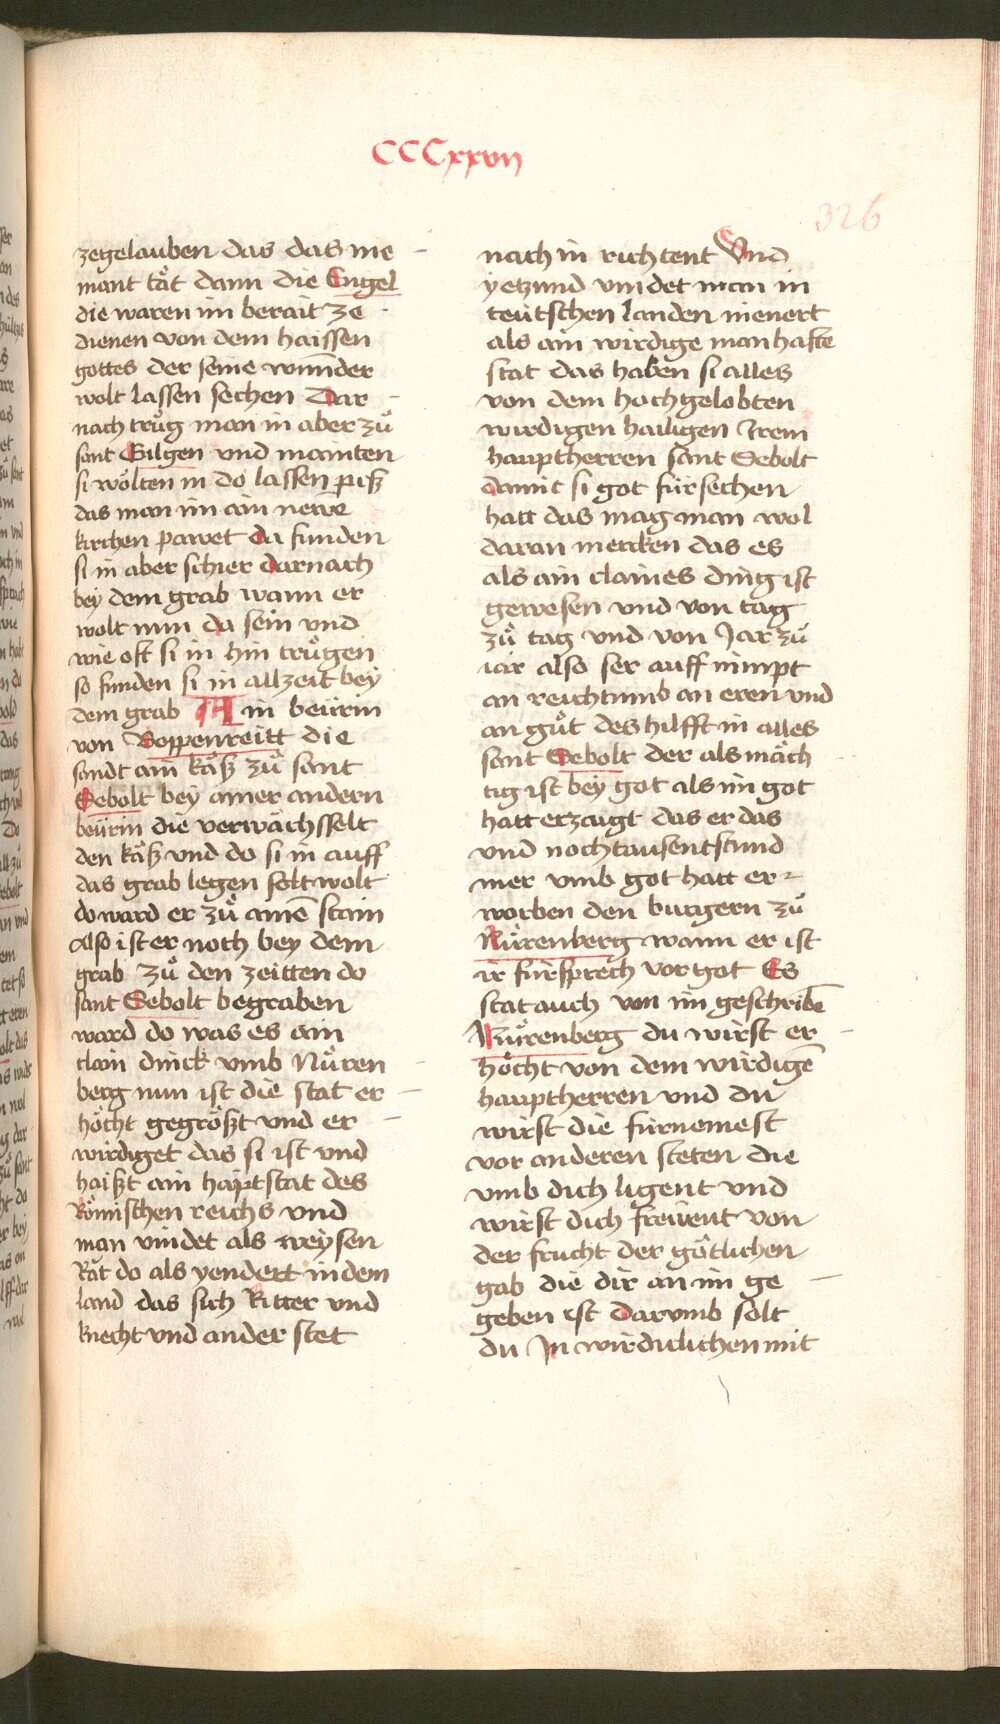 CCCxxvii
326
zegelauben das das nie
mant tät dann die Engel
die waren im berait ze
dienen von dem haissen
gottes der seine wunnder
wolt lassen sechen Dar
nach trůg man in aber zů
sant Gilgen vnd mainten
si wölten in do lassen piß
das man im ain newe
kirchen pawet da funden
si in aber schier darnach
bey dem grab wann er
wolt nun da sein vnd
wie oft si in hin trůgen
so funden si in allzeit bey
dem grab Ain beürin
von Boppenreitt die
sandt ain käß zů sant
Sebolt bey ainer andern
beürin die verwächsselt
den käß vnd do si in auff
das grab legen solt wolt
do ward er zů ainē stain
Also ist er noch bey dem
grab zů den zeitten do
sant Sebolt begraben
ward do was es ain
clain dinck vmb Nůren
berg nun ist die stat er
höcht gegrößt vnd er
wirdiget das si ist vnd
haißt ain haptstat des
Römischen reichs vnd
man vindet als weysen
Rät do als yendert in dem
land das sich Ritter vnd
knecht vnd ander stet
nach in richtent Vnd
yetzund vindet man in
teütschen landen nienert
als ain wirdige manhafte
stat das haben si alles
von dem hochgelobten
wirdigen hailigen Irem
hauptherren sant Sebolt
damit si got fürsechen
hatt das mag man wol
daran mercken das es
als ain claines ding ist
gewesen vnd von tag
zů tag vnd von Jar zů
iar also ser auff nimpt
an reichtumb an eren vnd
an gůt des hilfft in alles
sant Sebolt der als mäch
tig ist bey got als im got
hatt erzaigt das er das
vnd noch tausentstund
mer vmb got hatt er
worben den burgern zů
Nůrenberg wann er ist
ir fürsprech vor got Es
stat auch von im geschribē
Nůrenberg du wirst er
höcht von dem wirdigē
hauptherren vnd du
wirst die fürnemest
vor anderen steten die
vmb dich ligent vnd
wirst dich freüent von
der frucht der götlichen
gab die dir an im ge
geben ist Darvmb solt
du In wirdiclichen mit